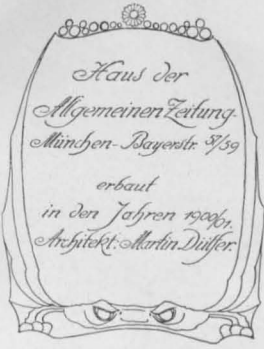 Haus der
Allgemeinen Zeitung.
München - Bayerstr. 57/59
erbaut
in den Jahren 1900/01.
Architekt: Martin Dülfer.